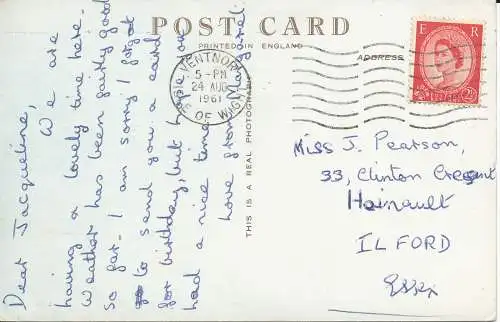 POST CARD
PRINTED IN ENGLAND
ADDRESS
THIS IS A REAL PHOTOGRAPH
VENTNOR
5 - PM
24 AUG
1961
ISLE OF WIGHT
E R
2½D
Dear Jacqueline,
We are
having a lovely time here.
Weather has been fairly good
so far. I am sorry I forgot
to send you a card
for birthday, but hope you
had a nice time.
Love from
Miss J. Pearson,
33, Clinton Crescent
Hainault
ILFORD
Essex